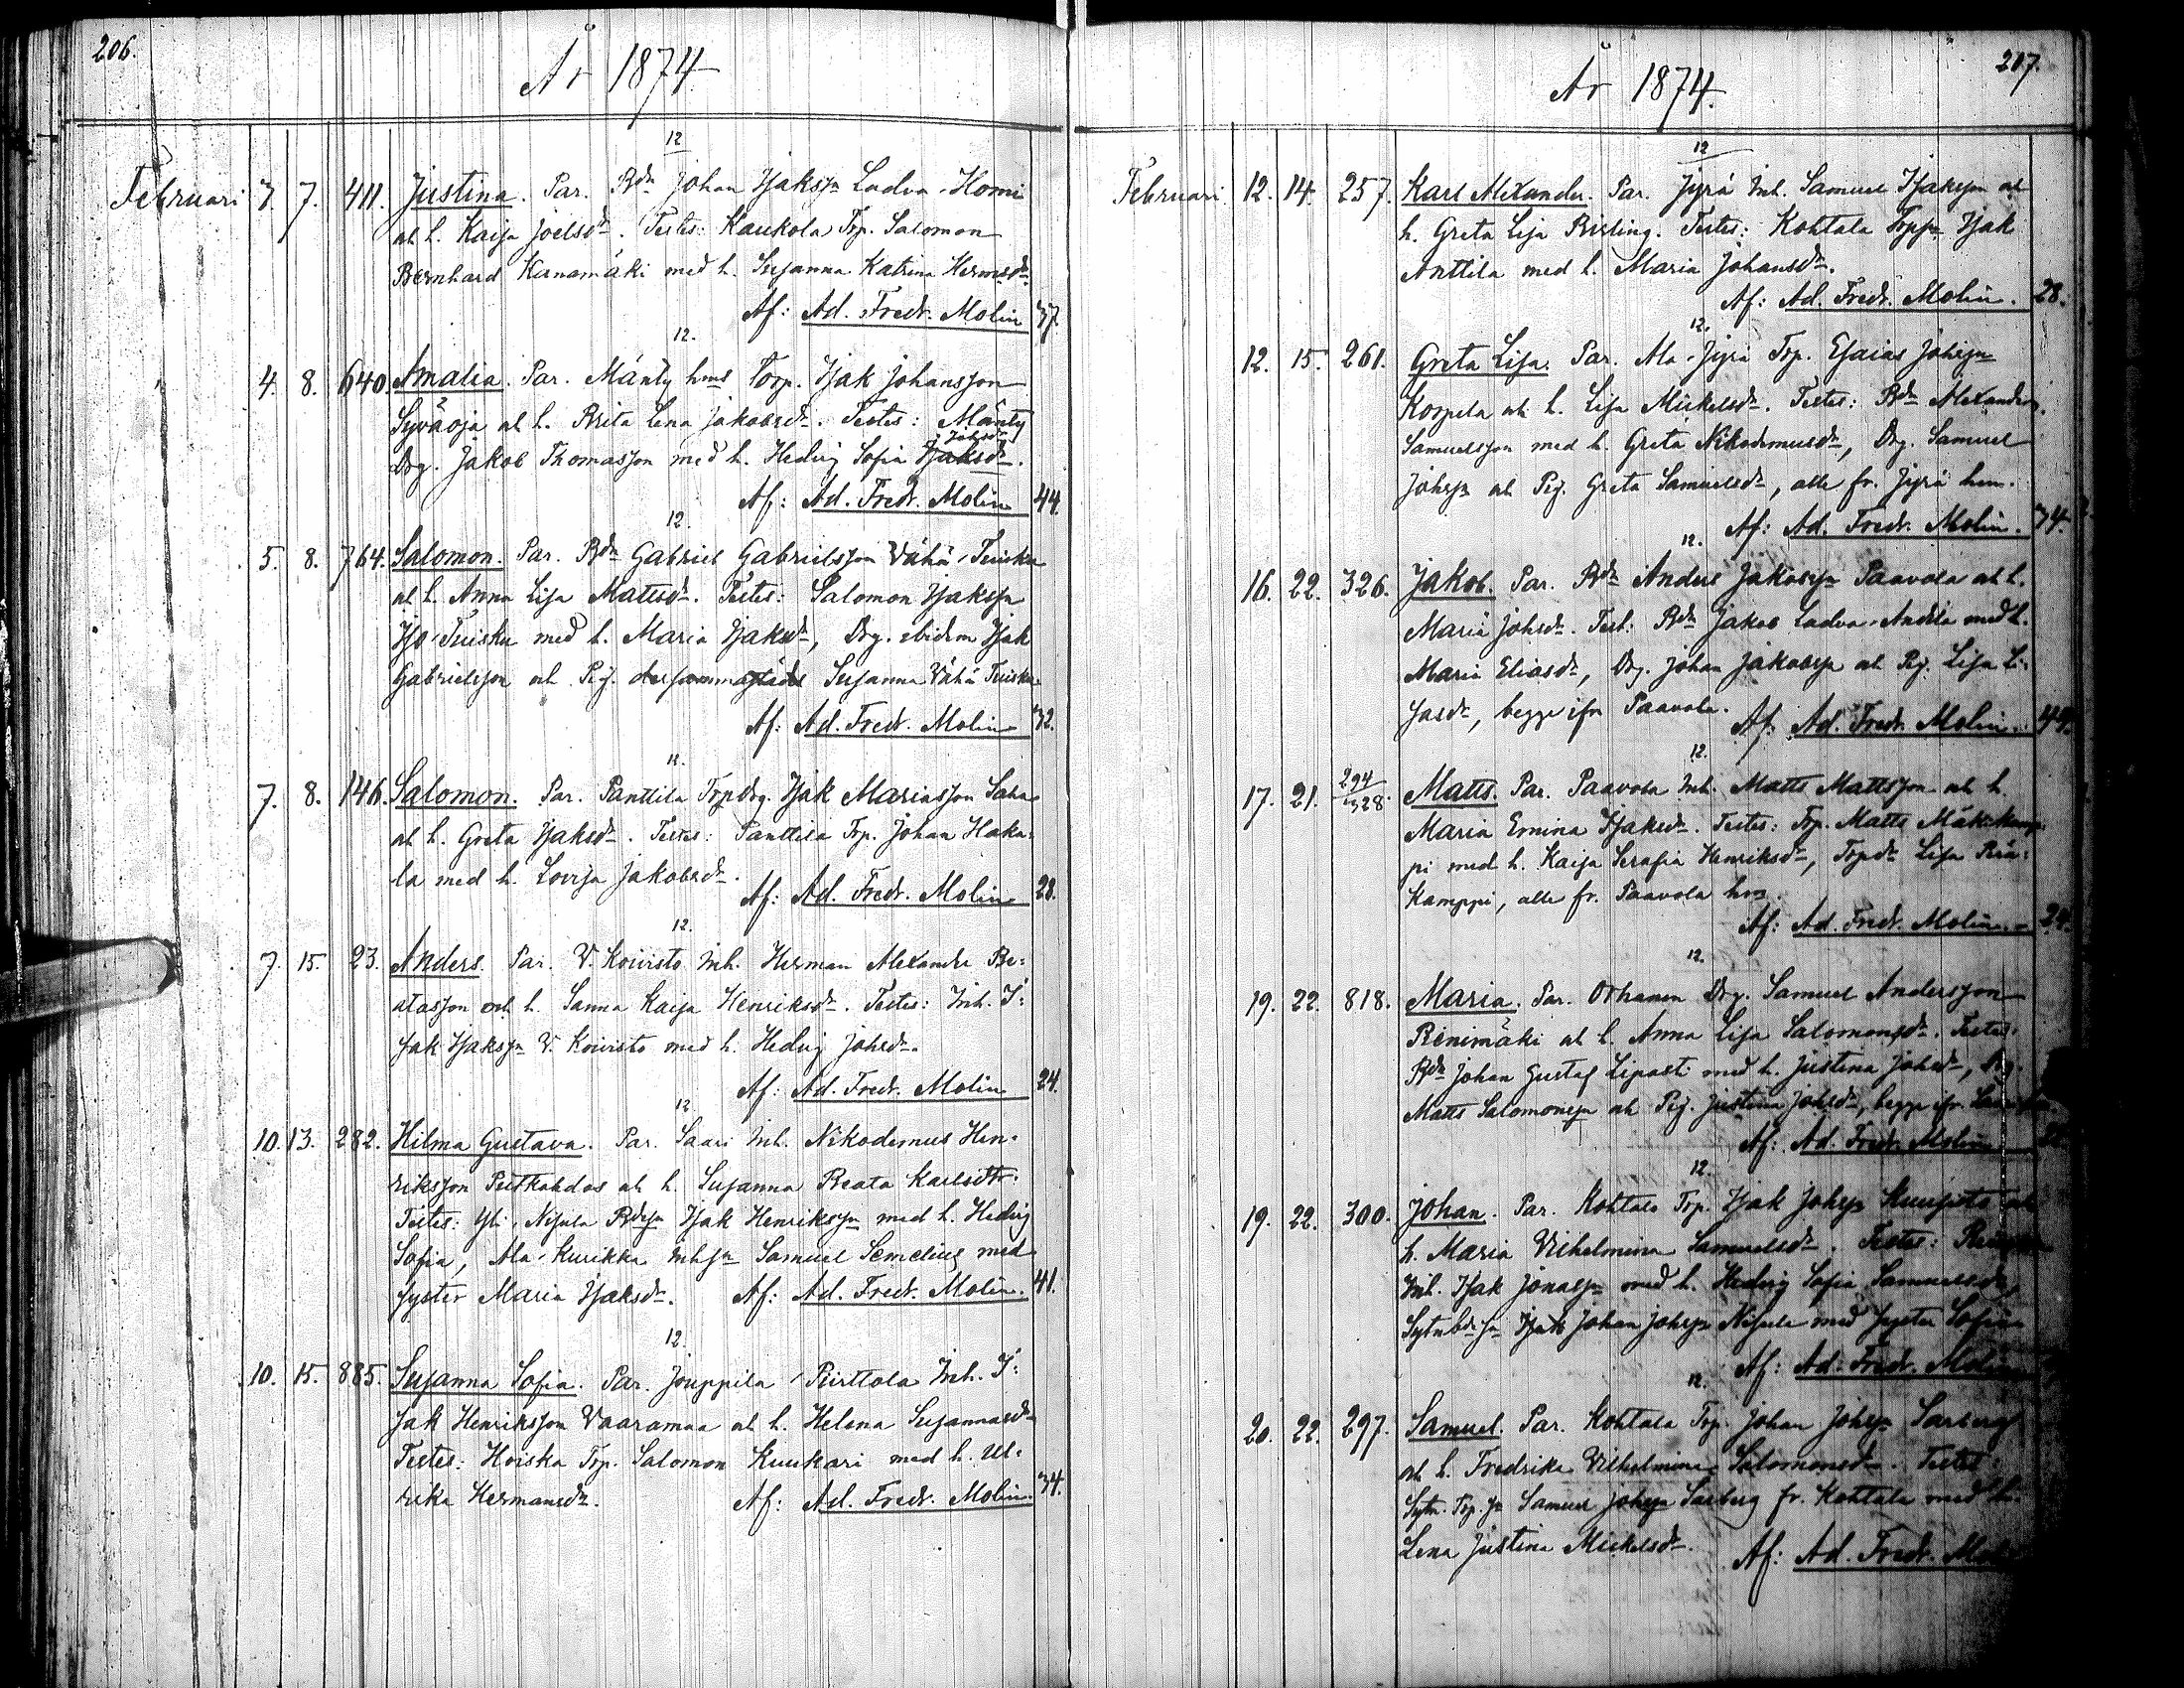 206.
År 1874
12
Februari 3. 7. 411. Justina. Par. Bdn Johan Isakssn Ladva-Homi
och h. Kaija Joelsdr. Testes: Kaukola Trp. Salomon
Bernhard Kanamäki med h. Susanna Katrina Hermsdr.
Af: Ad. Fredr. Molin 37.
12.
" 4. 8. 640. Amalia. Par. Mänty hms Torp. Isak Johansson
Syväoja och h. Brita Lena Jakobsdr. Testes: Mänty
Johsdr
Drg. Jakob Thomasson med h. Hedvig Sofia Isaksdr.
Af: Ad. Fredr. Molin 44.
12.
5. 8. 764. Salomon. Par. Bdn Gabriel Gabrielsson Vähä-Tuisku
och h. Anna Lisa Mattsdr. Testes: Salomon Isakssn
Iso-Tuisku med h. Maria Isaksdr, Drg. ibidem Isak
Gabrielsson och Pig. dersammastädes Susanna Vähä Tuisku.
Af: Ad. Fredr. Molin 32.
12.
7. 8. 146. Salomon. Par. Panttila Trpdrg. Isak Mariasson Saha
och h. Greta Isaksdr. Testes: Panttila Trp. Johan Haka-
la med h. Lovisa Jakobsdr.
Af: Ad. Fredr. Molin 28.
12.
7. 15. 23. Anders. Par. V. Koivisto Inh. Herman Alexander Be-
atasson och h. Sanna Kaija Henriksdr. Testes: Inh. I-
sak Isakssn V. Koivisto med h. Hedvig Johsdr.
Af: Ad. Fredr. Molin 24.
12
10. 13. 282. Hilma Gustava. Par. Saari Inh. Nikodemus Hen-
riksson Peitkahdas och h. Susanna Beata Karlsdtr.
Testes: Yli-Nisula Bdesn Isak Henrikssn med h. Hedvig
Sofia, Ala-Kurikka Inhsn Samuel Semelius med
syster Maria Isaksdr. Af: Ad. Fredr. Molin. 41.
12.
10. 15. 885. Susanna Sofia. Par. Jouppila-Piirttola Inh. I-
sak Henriksson Vaaramaa och h. Helena Susannasdr
Testes: Hoiska Trp. Salomon Kuukari med h. Ul-
rika Hermansdr. Af: Ad. Fredr. Molin. 34.
207.
År 1874.
12
Februari 12. 14. 257. Karl Alexander. Par. Jyrä Inh. Samuel Isakssn och
h. Greta Lisa Risling. Testes: Kohtala Trpsn Isak
Anttila med h. Maria Johansdr.
Af: Ad. Fredr. Molin. 28.
12.
12. 15. 261. Greta Lisa. Par. Ala-Jyrä Trp. Esaias Johssn
Korpela och h. Lisa Mickelsdr. Testes: Bdn Alexander
Samuelsson med h. Greta Nikodemusdr, Drg. Samuel
Johssn och Pig. Greta Samuelsdr, alle fr. Jyrä hem.
Af: Ad. Fredr. Molin. 34.
12.
16. 22. 326. Jakob. Par. Bdn Anders Jakobssn Paavola och h.
Maria Johsdr. Test: Bdn Jakob Ladva-Anttila med h.
Maria Eliasdr, Drg. Johan Jakobssn och Pig. Lisa E-
sasdr, begge ifr. Paavola.
Af: Ad. Fredr. Molin. 44.
12.
17. 21. 294/328. Matts. Par. Paavola Inh. Matts Mattsson och h.
Maria Ernina Isaksdr. Testes: Trp. Matts Mäki-Kamp-
pi med h. Kaija Serafia Henriksdr, Trpdr Lisa
Kamppi, alle fr. Paavola hm.
Af: Ad. Fredr. Molin. 24.
12.
19. 22. 818. Maria. Par. Orhanen Drg. Samuel Andersson
Renimäki och h. Anna Lisa Salomonsdr. Testes:
Bdn Johan Gustaf Lipasti med h. Justina Johsdr, Drg.
Matts Salomonssn och Pig. Justina Johsdr, begge ifr.
Af: Ad. Fredr. Molin
12.
19. 22. 300. Johan. Par. Kohtala Trp. Isak Johssn Kuusisto och
h. Maria Vilhelmina Samuelsdr. Testes:
Inh. Isak Jonassn med h. Hedvig Sofia Samuelsdr,
Sytnbdesn Isak Johan Johssn Nisula med syster Sofia
Af: Ad. Fredr. Molin
12.
20. 22. 297. Samuel. Par. Kohtala Trp. Johan Johssn Sarberg
och h. Fredrika Vilhelmina Salomonsdr. Testes:
Sytn. Trp. sn Samuel Johssn Sarberg fr. Kohtala med h.
Lena Justina Mickelsdr. Af: Ad. Fredr. Molin